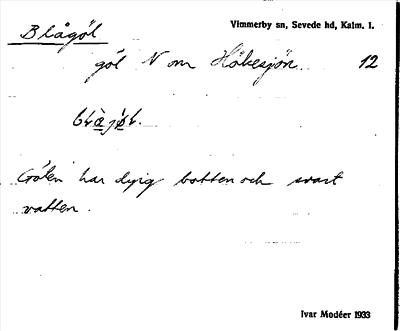 Blågöl
Vimmerby sn, Sevede hd, Kalm. l.
göl N om Hökesjön. 12
Gölen har dyig botten och svart
vatten.
Ivar Modéer 1933